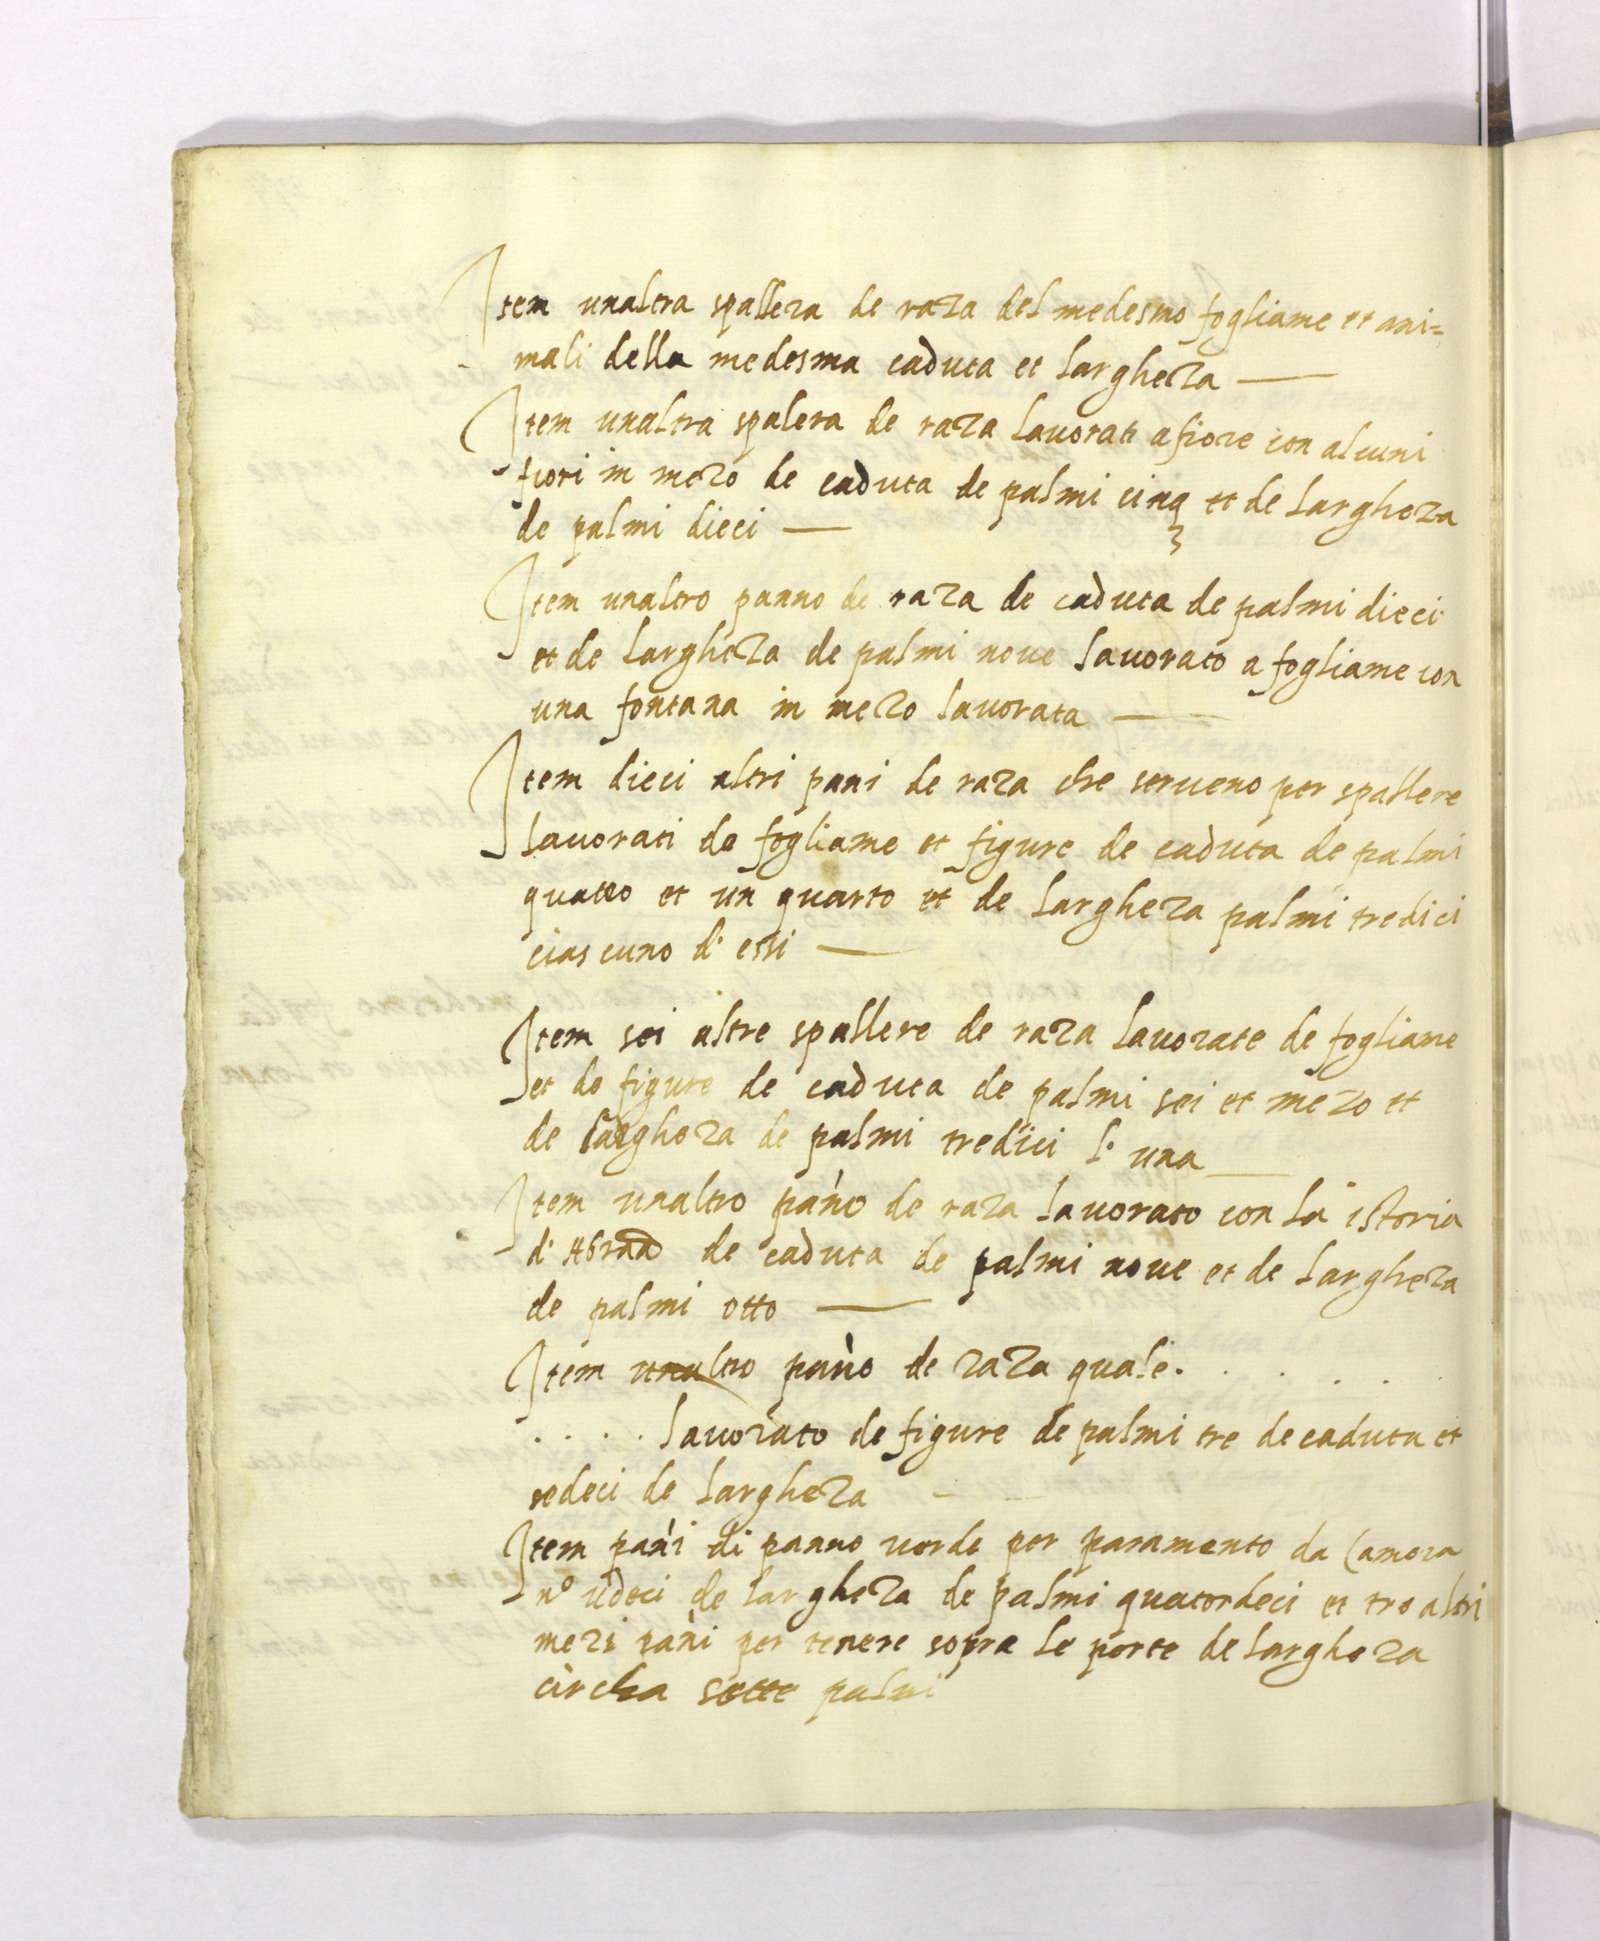 Item unaltra spallera de raza del medesmo fogliame et ani=
mali della medesma caduta et largheza
Item unaltra spalera de raza lavorati a fiore con alcuni
fiori in mezo de caduta de palmi cinq et de largheza
de palmi dieci
Item unaltro panno de raza de caduta de palmi dieci
et de largheza de palmi nove lavorato a fogliame con
una fontana in mezo lavorata
Item dieci altri pani de raza che serveno per spallere
lavorati de fogliame et figure de caduta de palmi
quatro et un quarto et de largheza palmi tredici
ciascuno d' essi
Item sei altre spallere de raza lavorate de fogliame
et de figure de caduta de palmi sei et mezo et
de largheza de palmi tredici l' una
Item unaltro pano de raza lavorato con la istoria
d' de caduta de palmi nove et de largheza
de palmi otto
Item unaltro pano de raza quale . . . . . .
. . . . lavorato de figure de palmi tre de caduta et
sedeci de largheza
Item pani di panno verde per paramento da camera
n° udeci de largheza de palmi quatordeci et tre altri
mezi pani per tenere sopra le porte de largheza
circha sette palmi